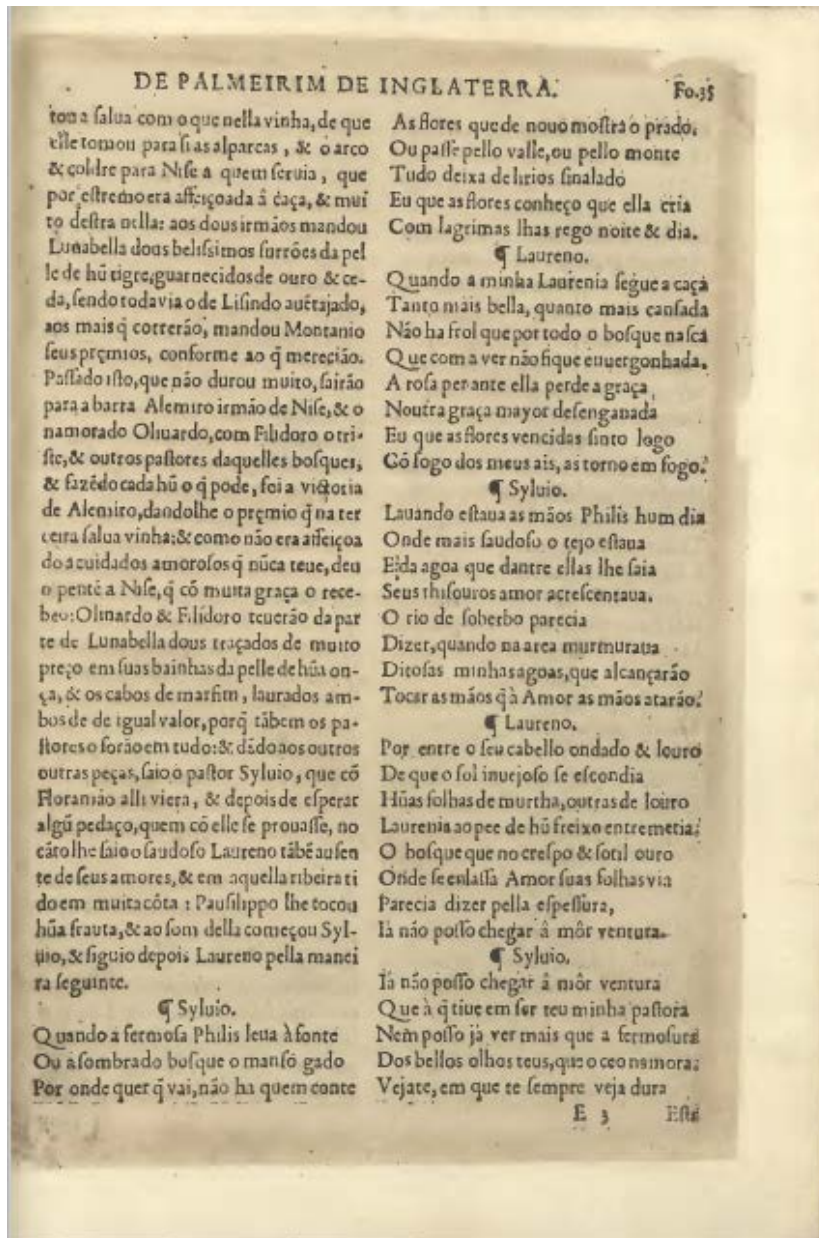 DE PALMEIRIM DE INGLATERRA.
Fo.35
tou a ſalua com o que nella vinha, de que
elle tomou para ſi as alparcas, & o arco
& coldre para Niſe a quem ſeruia, que
por eſtremo era affeiçoada â caça, & mui
to deſtra nella: aos dous irmãos mandou
Lunabella dous beliſsimos ſurrões da pel
le de hũ tigre, guarnecidos de ouro & ce-
da, ſendo todavia o de Liſindo auẽtajado,
aos mais q̃ correrão, mandou Montanio
ſeus pręmios, conforme ao q̃ merecião.
Paſſado iſto, que não durou muito, ſairão
para a barra Alemiro irmão de Niſe, & o
namorado Oliuardo, com Filidoro o tri-
ſte, & outros paſtores daquelles boſques,
& fazẽdo cada hũ o q̃ pode, foi a victoria
de Alemiro, dandolhe o pręmio q̃ na ter
ceira ſalua vinha; & como não era affeiçoa
do a cuidados amoroſos q̃ nũca teue, deu
o pentẽ a Niſe, q̃ cõ muita graça o rece-
beo: Oliuardo & Filidoro teuerão da par
te de Lunabella dous traçados de muito
preço em ſuas bainhas da pelle de hũa on-
ça, & os cabos de marfim, laurados am-
bos de de igual valor, porq̃ tãbem os pa-
ſtores o forão em tudo: & dãdo aos outros
outras peças, ſaio o paſtor Syluio, que cõ
Floramão alli viera, & depois de eſperar
algũ pedaço, quem cõ elle ſe prouaſſe, no
cãto lhe ſaio o ſaudoſo Laureno tãbẽ auſen
te de ſeus amores, & em aquella ribeira ti
do em muita cõta: Pauſilippo lhe tocou
hũa frauta, & ao ſom della começou Syl-
uio, & ſiguio depois Laureno pella manei
ra ſeguinte.
¶ Syluio.
Quando a fermoſa Philis leua à fonte
Ou a ſombrado boſque o manſo gado
Por onde quer q̃ vai, não ha quem conte
As flores que de nouo moſtra o prado.
Ou paſſe pello valle, ou pello monte
Tudo deixa de lirios ſinalado
Eu que as flores conheço que ella cria
Com lagrimas lhas rego noite & dia.
¶ Laureno.
Quando a minha Laurenia ſegue a caça
Tanto mais bella, quanto mais canſada
Não ha frol que por todo o boſque naſca
Que com a ver não fique enuergonhada.
A roſa per ante ella perde a graça
Noutra graça mayor deſenganada
Eu que as flores vencidas ſinto logo
Cõ fogo dos meus ais, as torno em fogo.
¶ Syluio.
Lauando eſtaua as mãos Philis hum dia
Onde mais ſaudoſo o tejo eſtaua
E da agoa que dantre ellas lhe ſaia
Seus thiſouros amor acreſcentaua.
O rio de ſoberbo parecia
Dizer, quando na area murmuraua
Ditoſas minhas agoas, que alcançarão
Tocar as mãos q̃ à Amor as mãos atarão.
¶ Laureno.
Por entre o ſeu cabello ondado & louro
De que o ſol inuejoſo ſe eſcondia
Hũas folhas de murtha, outras de louro
Laurenia ao pee de hũ freixo entremetia.
O boſque que no creſpo & ſotil ouro
Onde ſe enlaſſa Amor ſuas folhas via
Parecia dizer pella eſpeſſura,
Iâ não poſſo chegar â môr ventura.
¶ Syluio.
Iâ não poſſo chegar â môr ventura
Que à q̃ tiue em ſer teu minha paſtora
Nem poſſo jà ver mais que a fermoſura
Dos bellos olhos teus, que o ceo namora;
Vejate, em que te ſempre veja dura
E 3
Eſta